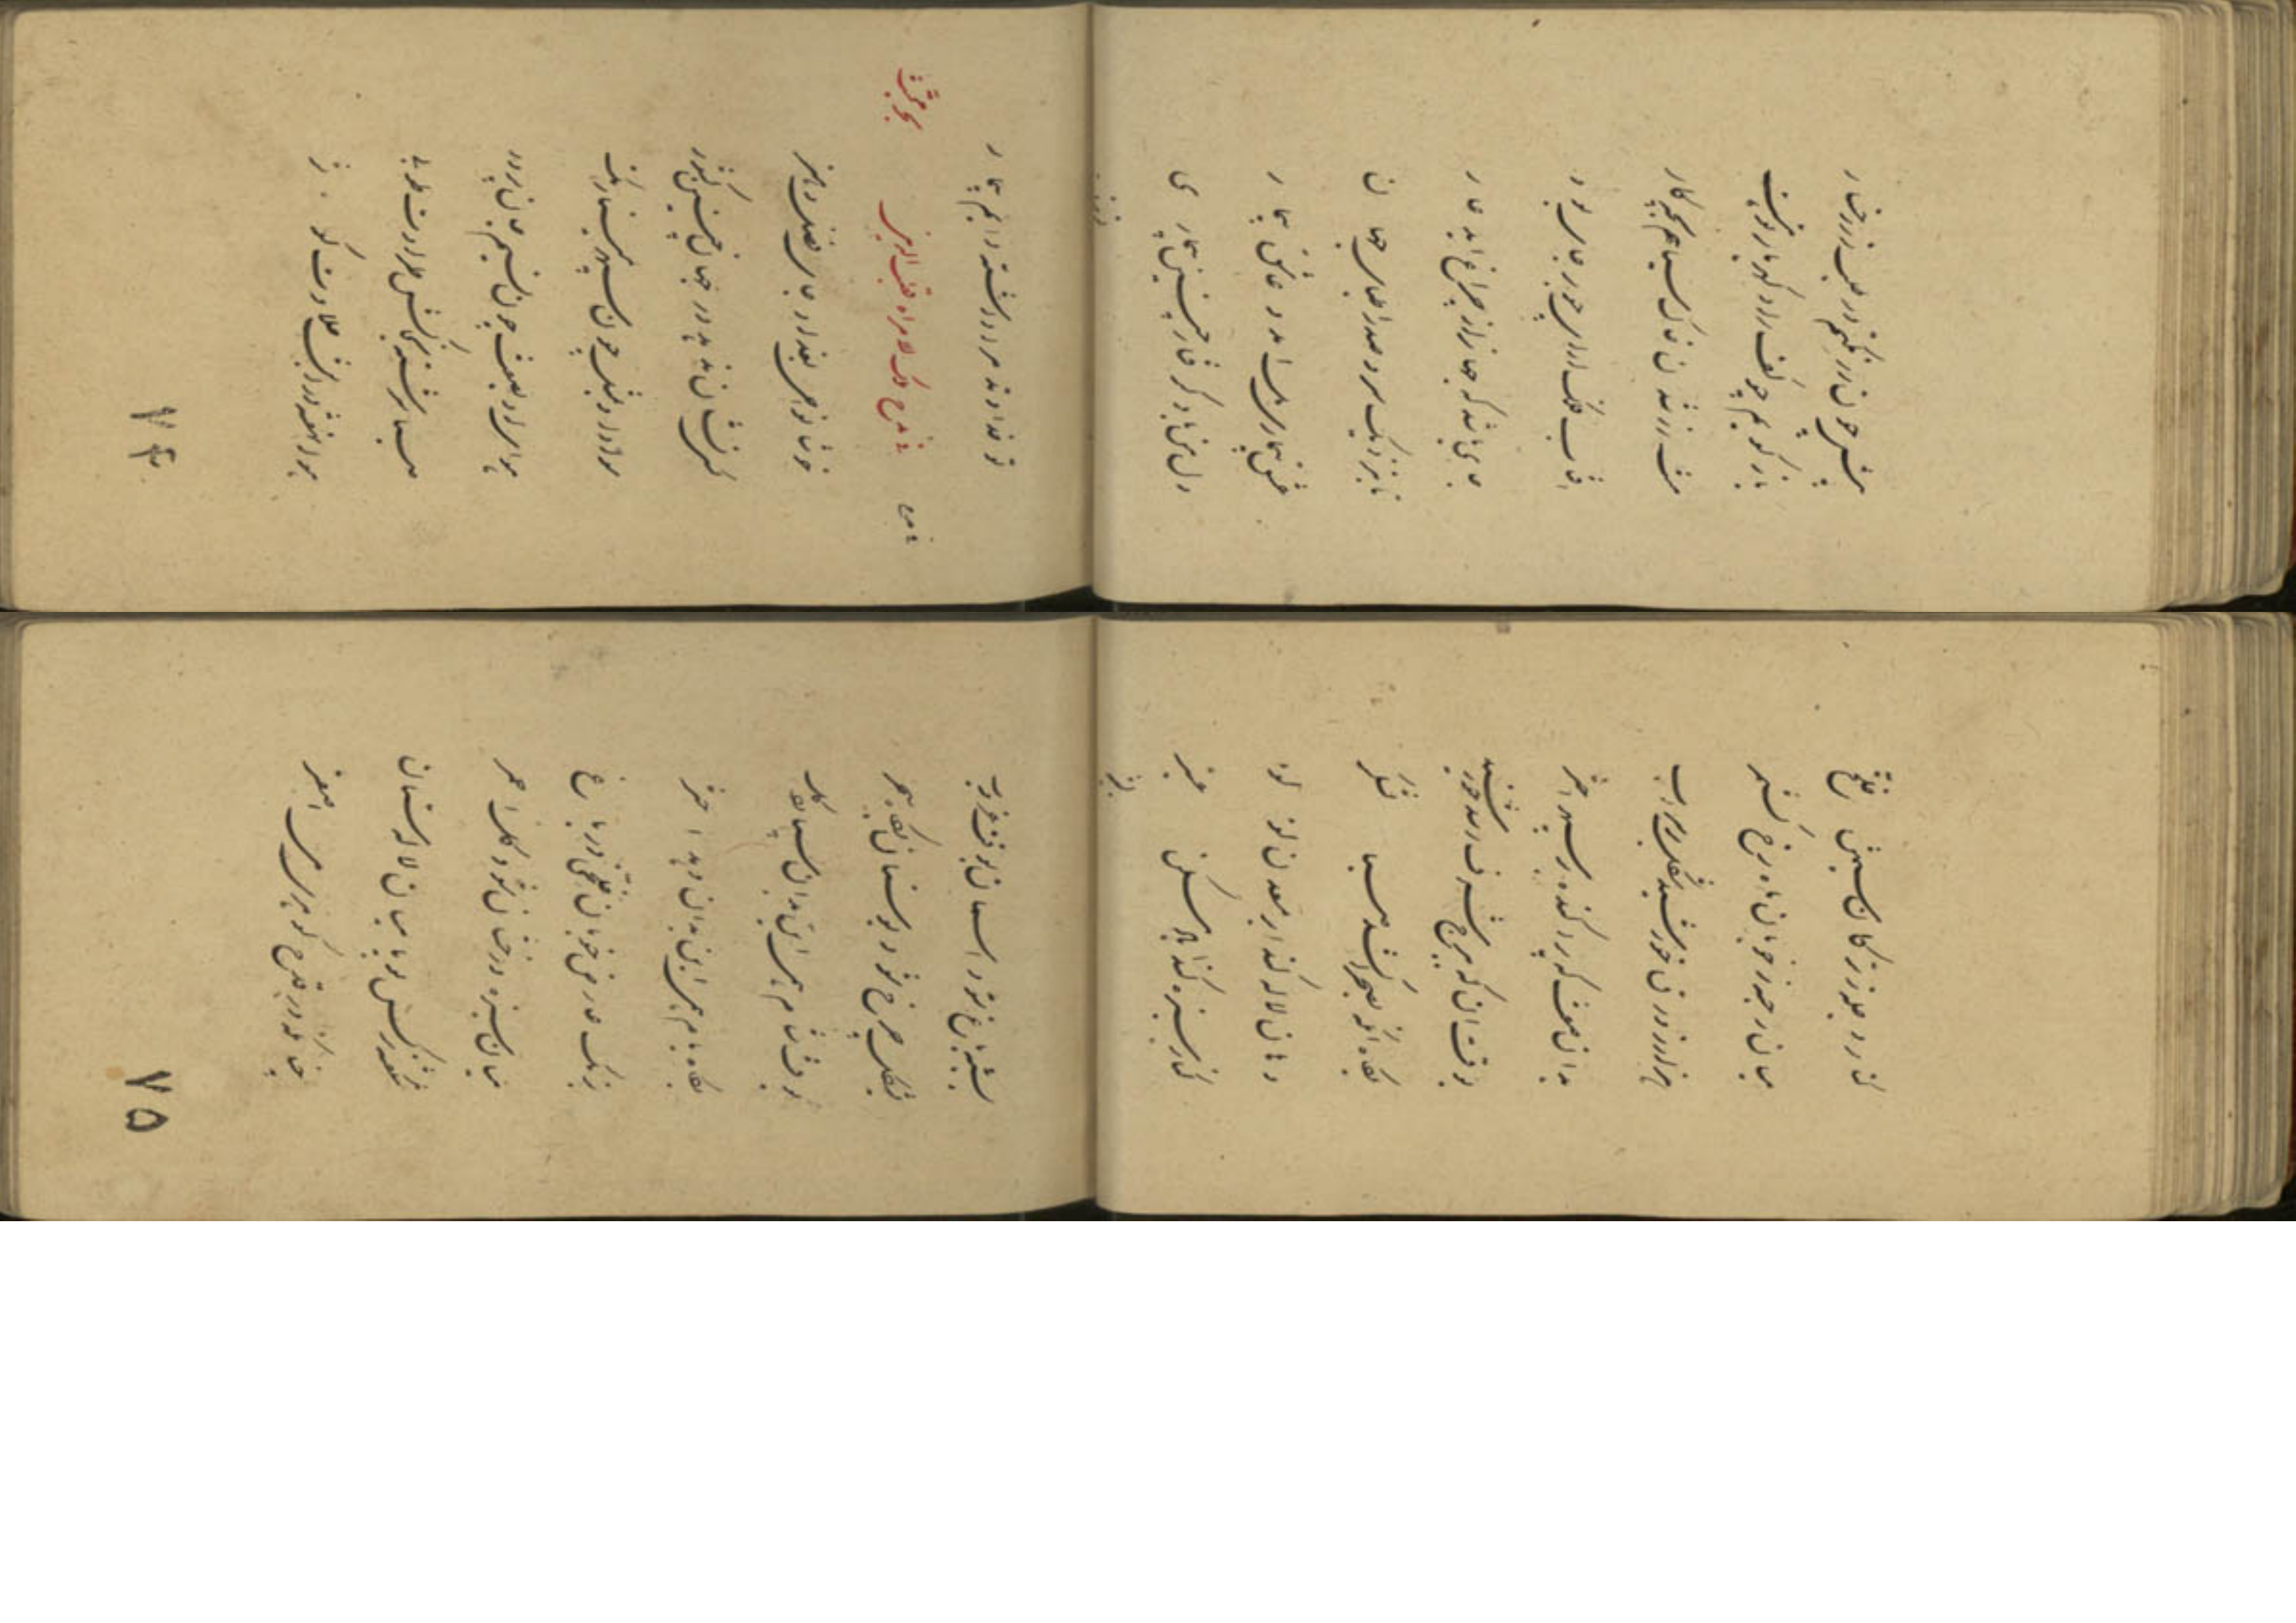 باز گویم چو کفت را و گهربار
خاک سیاهم بچه کار
آفتاب فلک آرای چو بر جای بود
جای باشد که جهان را ز چراغ آید عار
تا بنزدیک سر و صدر اطبای جهان
عشق بیماری دل آمد و عاشق بیمار
دل من باد گرفتار چنین بیماری
فی مدح ملک الامراء قطب الدین
خوشا نواحی بغداد جای فضل و هنر
کس نشان ندهد در جهان چنین کشور
سواد او بمثل چون سپهر مینا رنگ
هوای او بصفت چون نسیم جان پرور
صبا سرشته بخاکش طراوت طوبی
هوا نهفته در آبش حلاوت کوثر
۷۴
کنار دجله ز ترکان سیمتن خلخ
میان رحبه ز خوبان ماه رخ کشمر
هزار زورق خورشید شکل بر سر آب
بدان صفت که پراکنده بر سپهر اختر
بوقت آن که ببرج شرف رسد خورشید
بگاه آنکه بصحرا کشد صبا لشکر
دهان لاله کند ابر معدن لولو
کنار سبزه کند باد مسکن عنبر
بشبه باغ شود آسمان بوقت غروب
بشکل چرخ شود بوستان بگاه سحر
بوقت شام همی این بدان سپارد گل
بگاه بام همی این بدان دهد اختر
برنگ عارض خوبان خلخی در باغ
میان سبزه درفشان شود گل احمر
شکفته نرگس بویا میان لاله ستان
چنانکه در قدح گوهرین می اصفر
۷۵